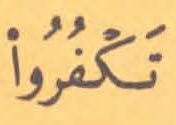 تَكْفُرُوا۟